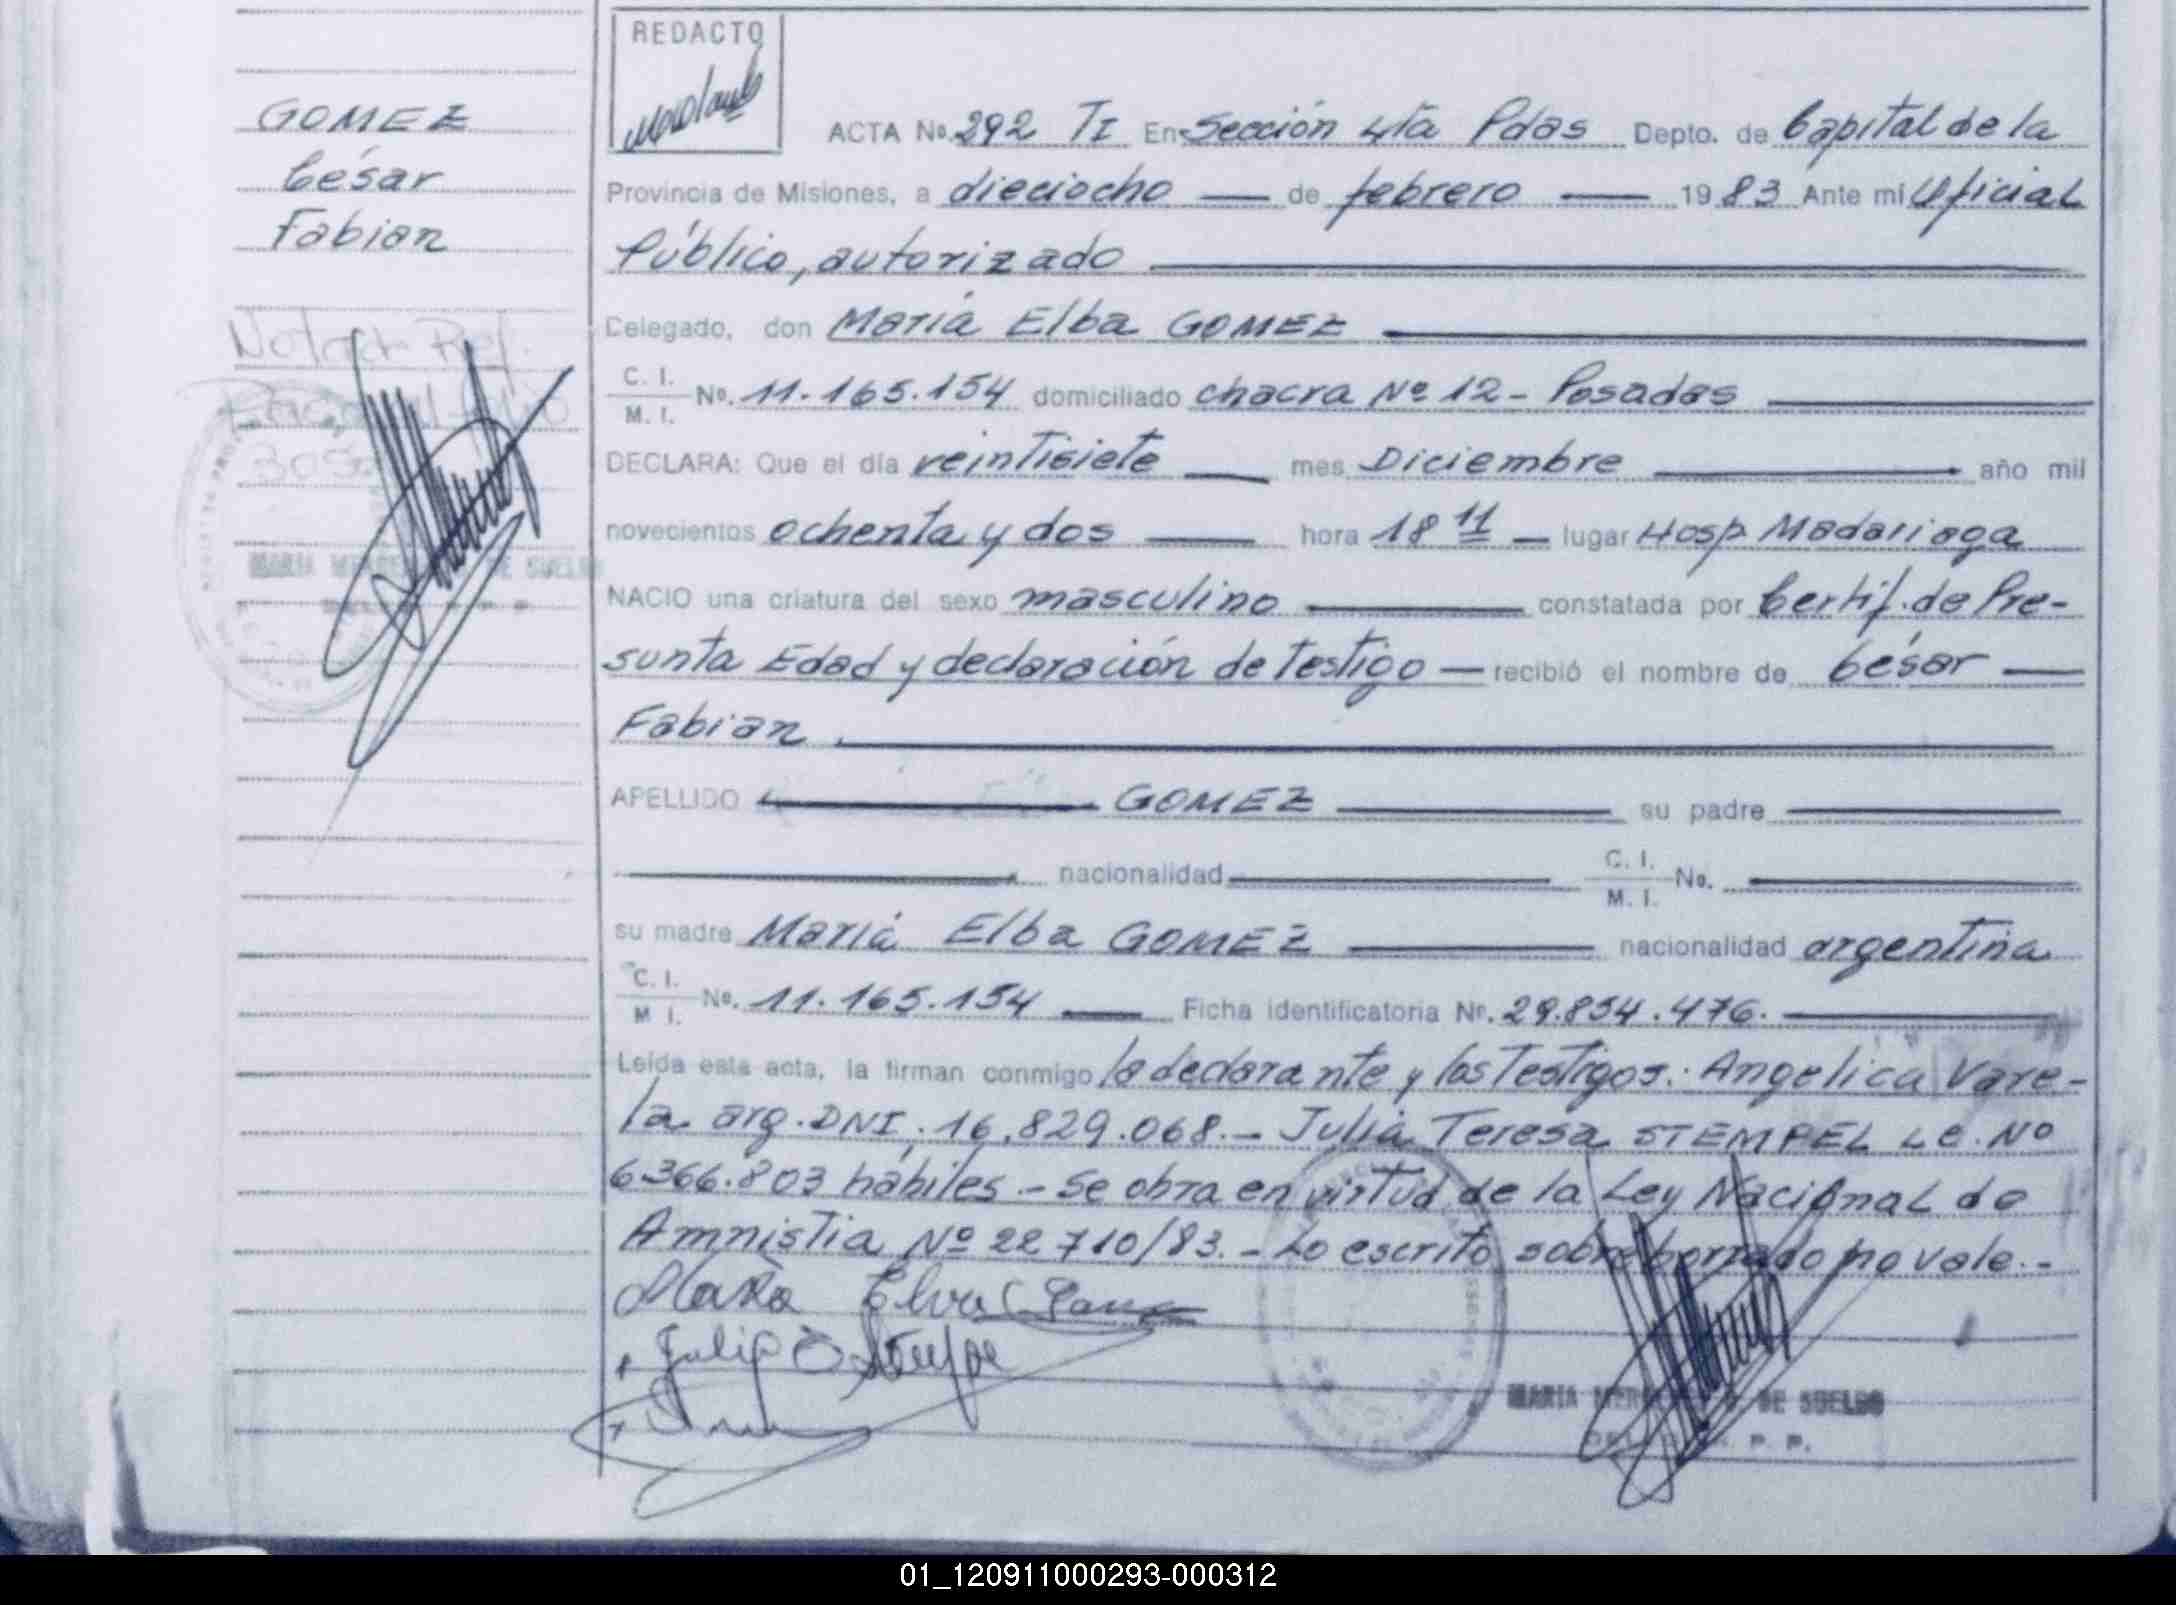 REDACTO
GOMEZ
César
Fabian
Notar Ref.
ACTA No. 292 TI En Sección 4ta Pdas Depto. de Capital de la
Provincia de Misiones, a dieciocho — de febrero — 1983 Ante mi Oficial
Público, autorizado
Delegado, don María Elba GOMEZ
C. I. M. I. No. 11.165.154 domiciliado chacra Nº 12 - Posadas
DECLARA: Que el día veintisiete — mes Diciembre — año mil
novecientos ochenta y dos — hora 18 11 — lugar Hosp. Madariaga
NACIO una criatura del sexo masculino — constatada por Certif. de Pre-
sunta Edad y declaración de Testigo — recibió el nombre de César —
Fabian
APELLIDO — GOMEZ — su padre —
— nacionalidad — C. I. M. I. No. —
su madre María Elba GOMEZ — nacionalidad argentina
C. I. M I. No. 11.165.154 — Ficha identificatoria Nº. 29.854.476. —
Leída esta acta, la firman conmigo la declarante y los Testigos: Angelica Vare-
la arg. DNI. 16.829.068. - Julia Teresa STEMPEL L.E. Nº
6366.803 hábiles. - Se obra en virtud de la Ley Nacional de
Amnistia Nº 22710/83. - Lo escrito sobreborrado no vale. -
María Elva
Julia
MARIA DE SUELDO
MARIA DE SUELDO
01_120911000293-000312